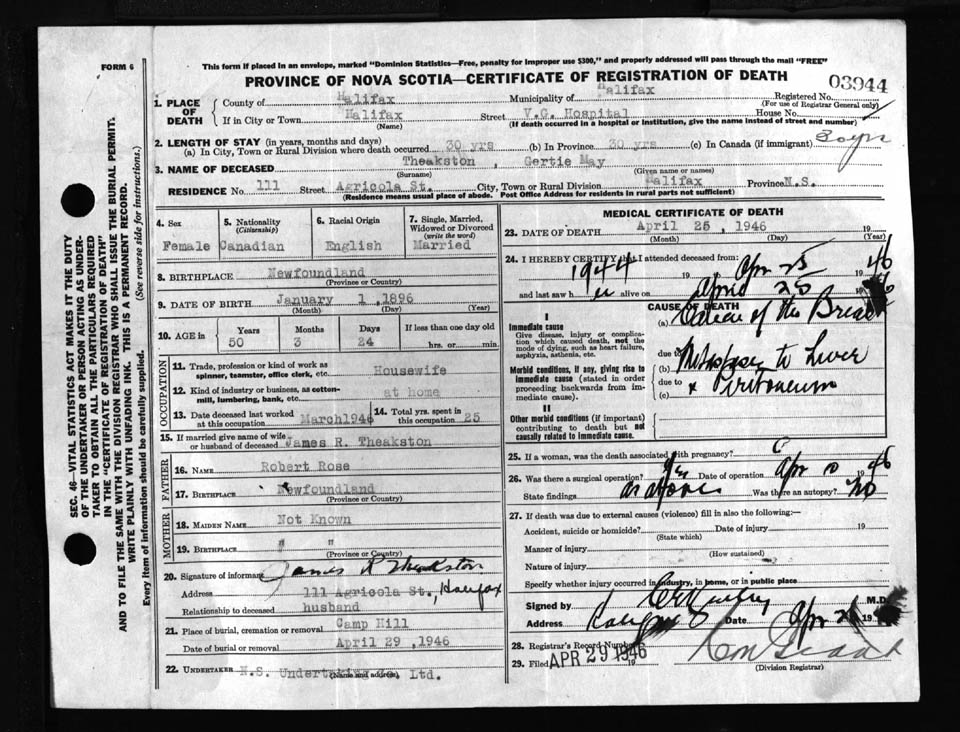 FORM 6
This form if placed in an envelope, marked "Dominion Statistics—Free, penalty for improper use $300," and properly addressed will pass through the mail "FREE"
PROVINCE OF NOVA SCOTIA—CERTIFICATE OF REGISTRATION OF DEATH
03944
1. PLACE OF DEATH
County of Halifax Municipality of Halifax Registered No.
(For use of Registrar General only)
If in City or Town Halifax Street V.G. Hospital House No.
(Name) (If death occurred in a hospital or institution, give the name instead of street and number)
2. LENGTH OF STAY (in years, months and days)
(a) In City, Town or Rural Division where death occurred 30 yrs (b) In Province 30 yrs (c) In Canada (if immigrant) 30 yrs
3. NAME OF DECEASED Theakston, Gertie May
(Surname) (Given name or names)
RESIDENCE No. 111 Street Agricola St. City, Town or Rural Division Halifax Province N.S.
(Residence means usual place of abode. Post Office Address for residents in rural parts not sufficient)
4. Sex
Female
5. Nationality
(Citizenship)
Canadian
6. Racial Origin
English
7. Single, Married, Widowed or Divorced
(write the word)
Married
8. BIRTHPLACE Newfoundland
(Province or Country)
9. DATE OF BIRTH January 1, 1896
(Month) (Day) (Year)
10. AGE in Years Months Days If less than one day old
50 3 24 hrs. or min.
OCCUPATION
11. Trade, profession or kind of work as spinner, teamster, office clerk, etc. Housewife
12. Kind of industry or business, as cotton-mill, lumbering, bank, etc. at home
13. Date deceased last worked at this occupation March 1946
14. Total yrs. spent in this occupation 25
15. If married give name of wife or husband of deceased James R. Theakston
FATHER
16. NAME Robert Rose
17. BIRTHPLACE Newfoundland
(Province or Country)
MOTHER
18. MAIDEN NAME Not Known
19. BIRTHPLACE " "
(Province or Country)
20. Signature of informant James R Theakston
Address 111 Agricola St., Halifax
Relationship to deceased husband
21. Place of burial, cremation or removal Camp Hill
Date of burial or removal April 29, 1946
22. UNDERTAKER N.S. Undertaking Co., Ltd.
(Name and address)
MEDICAL CERTIFICATE OF DEATH
23. DATE OF DEATH April 25, 1946 19
(Month) (Day) (Year)
24. I HEREBY CERTIFY that I attended deceased from:
1944 19 Apr 25 1946
and last saw her alive on April 25 1946
CAUSE OF DEATH
I
Immediate cause
Give disease, injury or complication which caused death, not the mode of dying, such as heart failure, asphyxia, asthenia, etc.
(a) of the Breast
due to
Morbid conditions, if any, giving rise to immediate cause (stated in order proceeding backwards from immediate cause).
(b) to Liver
due to
(c) & Peritoneum
II
Other morbid conditions (if important) contributing to death but not causally related to immediate cause.
25. If a woman, was the death associated with pregnancy? 0
26. Was there a surgical operation? yes Date of operation Apr 10 1946
State findings as above Was there an autopsy? no
27. If death was due to external causes (violence) fill in also the following:—
Accident, suicide or homicide? Date of injury 19
(State which)
Manner of injury
(How sustained)
Nature of injury
Specify whether injury occurred in industry, in home, or in public place
Signed by M.D.
Address Halifax Date Apr 19
28. Registrar's Record Number
29. Filed APR 29 1946 19
(Division Registrar)
SEC. 46—VITAL STATISTICS ACT MAKES IT THE DUTY
OF THE UNDERTAKER OR PERSON ACTING AS UNDER-
TAKER TO OBTAIN ALL THE PARTICULARS REQUIRED
IN THE "CERTIFICATE OF REGISTRATION OF DEATH"
AND TO FILE THE SAME WITH THE DIVISION REGISTRAR WHO SHALL ISSUE THE BURIAL PERMIT.
WRITE PLAINLY WITH UNFADING INK. THIS IS A PERMANENT RECORD.
Every item of information should be carefully supplied. (See reverse side for instructions.)